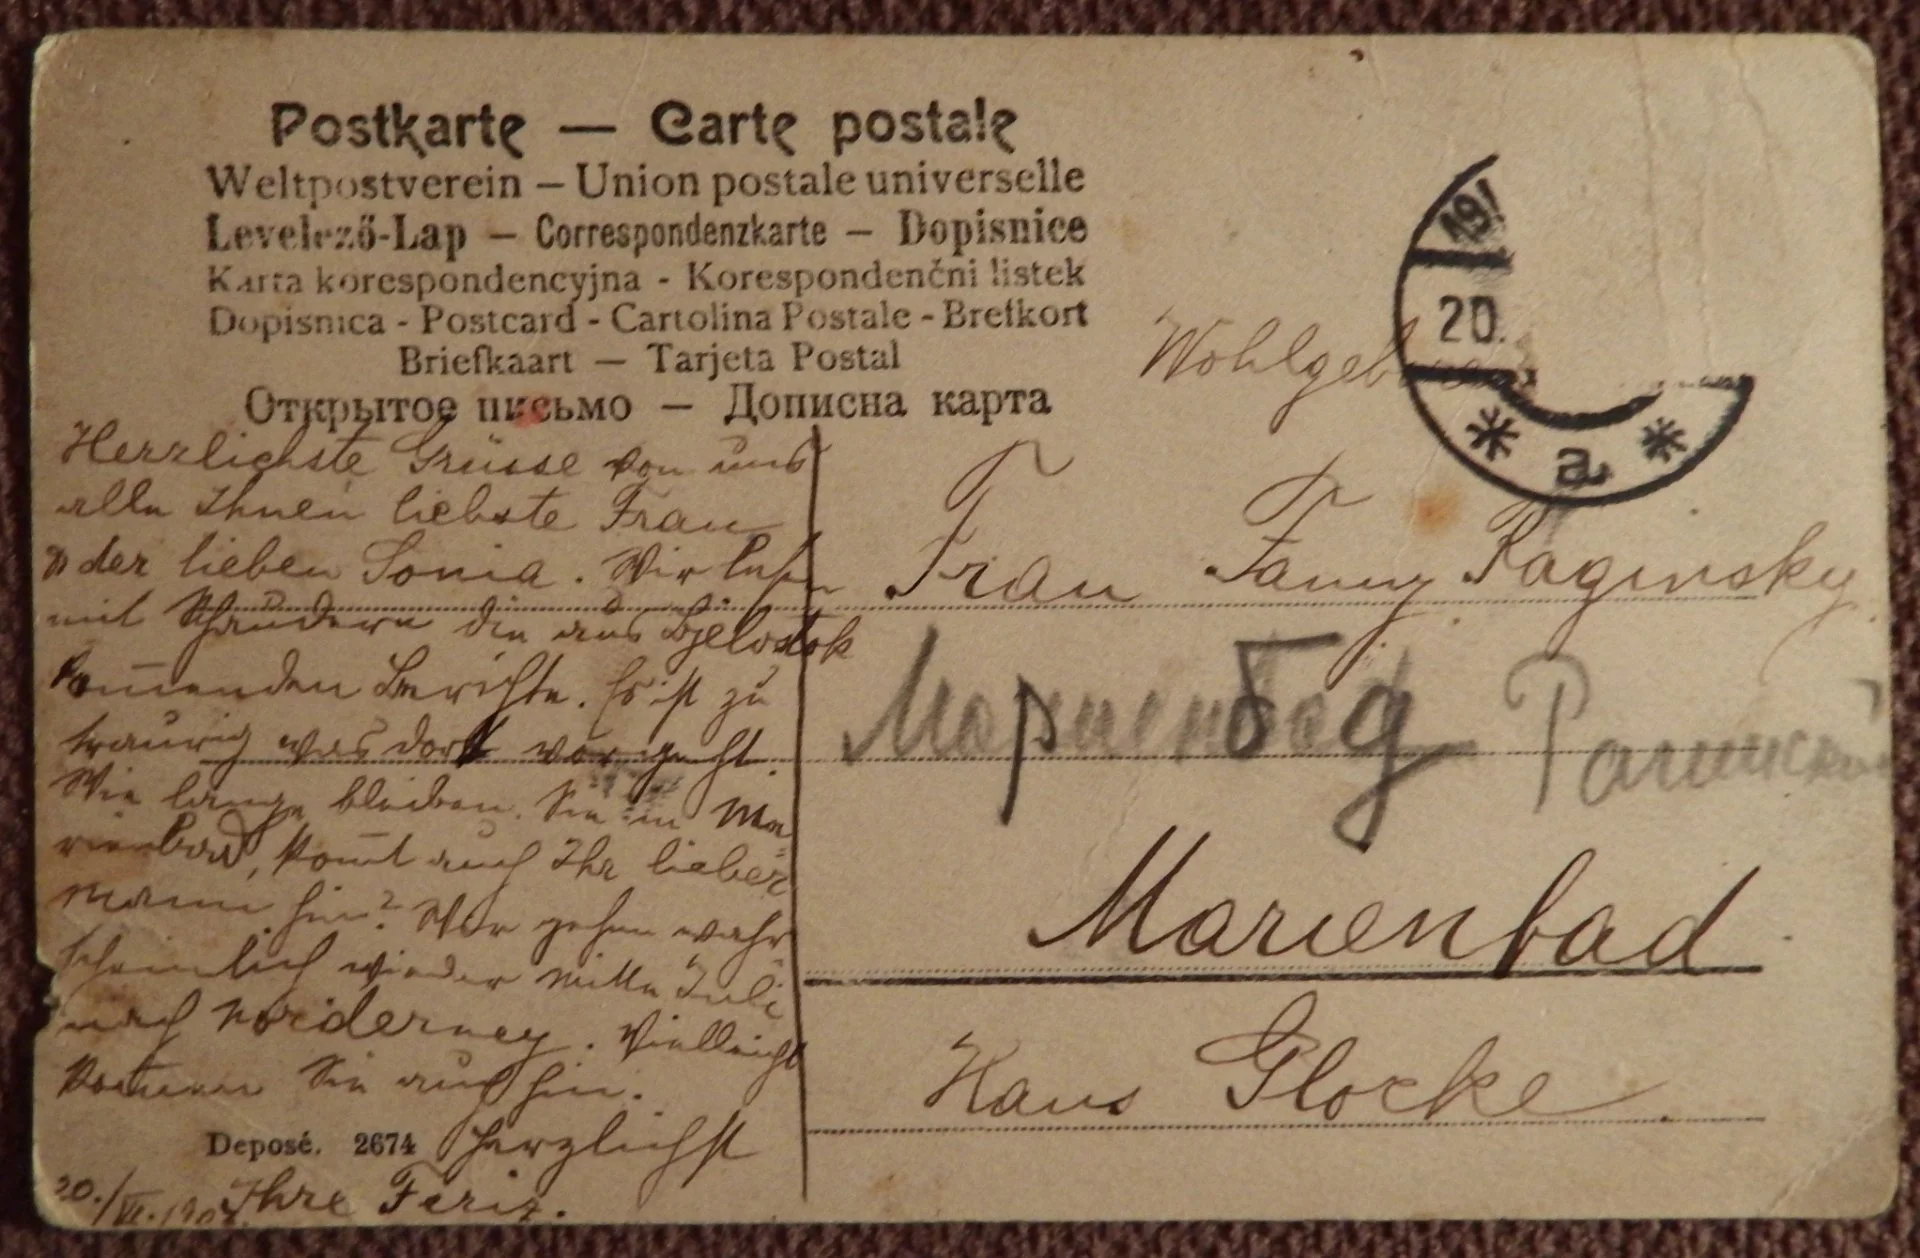 Postkarte — Carte postale
Weltpostverein — Union postale universelle
Levelező-Lap — Correspondenzkarte — Dopisnice
Karta korespondencyjna - Korespondenčni listek
Dopisnica - Postcard - Cartolina Postale - Brefkort
Briefkaart — Tarjeta Postal
Открытое письмо — Дописна карта
Herzlichste Grüsse von uns
alle Ihnen liebste Frau
der lieben Sonia. Wir lesen
mit Schaudern die aus Bjelostok
kom̅enden Berichte. Es ist zu
traurig was dort vorgeht.
Wie lange bleiben Sie in Ma
rienbad, kom̅t auch Ihr lieber
Mann hin? Wir gehen wahr
scheinlich wieder Mitte Juli
nach Norderney. Vielleicht
kom̅en Sie auch hin.
Herzlichst
Ihre Feriz.
20./VI. 190
Deposé. 2674
19
20.
* a *
Wohlgeb
Frau Fanny Raginsky
Мариенбад Рагинский
Marienbad
Haus Glocke.